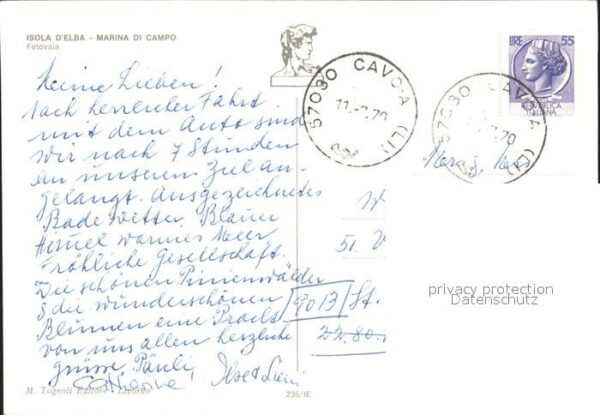 ISOLA D'ELBA - MARINA DI CAMPO
Fetovaia
Meine Lieben!
Nach herrlicher Fahrt
mit dem Auto sind
wir nach 7 Stunden
an unserem Ziel an-
gelangt. Ausgezeichnetes
Badewetter. Blauer
Himmel warmes Meer
Fröhliche Gesellschaft.
Die schönen Pinienwälder
& die wunderschönen
Blumen eine Pracht
von uns allen herzliche
grüsse, Päuli,
M. Tognoli Editore - Livorno
235/IE
LIRE 55
REPUBBLICA
ITALIANA
57030 CAVO (LI)
11.-7.70
57030 CAVO (LI)
7.70
W
51. V
9013 / St.
22.80.
privacy protection
Datenschutz